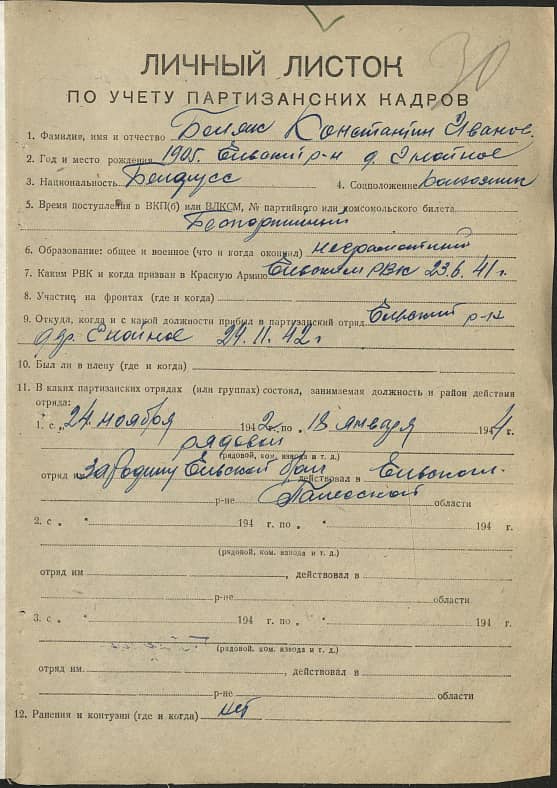 30
ЛИЧНЫЙ ЛИСТОК
ПО УЧЕТУ ПАРТИЗАНСКИХ КАДРОВ
1. Фамилия, имя и отчество Беляк Константин Иванов.
2. Год и место рождения 1905г. Ельский р-н д.
3. Национальность Белорусс 4. Соцположение Колхозник
5. Время поступления в ВКП(б) или ВЛКСМ, № партийного или комсомольского билета
Беспартийный
6. Образование: общее и военное (что и когда окончил) неграмотный
7. Каким РВК и когда призван в Красную Армию Ельским РВК 23.6.41г.
8. Участие на фронтах (где и когда)
9. Откуда, когда и с какой должности прибыл в партизанский отряд Ельский р-н
дер. 24.11.42г
10. Был ли в плену (где и когда)
11. В каких партизанских отрядах (или группах) состоял, занимаемая должность и район действия
отряда:
1. с „24 ноября 1942 г. по „18 января 1944 г.
рядовой
(рядовой, ком. взвода и т. д.)
отряд им За Родину Ельской бриг действовал в Ельском
р-не Полесской области
2. с „ " 194 г. по „ " 194 г.
(рядовой, ком. взвода и т. д.)
отряд им , действовал в
р-не области
3. с „ " 194 г. по „ " 194 г.
(рядовой, ком. взвода и т. д.)
отряд им. , действовал в
р-не области
12. Ранения и контузии (где и когда) нет